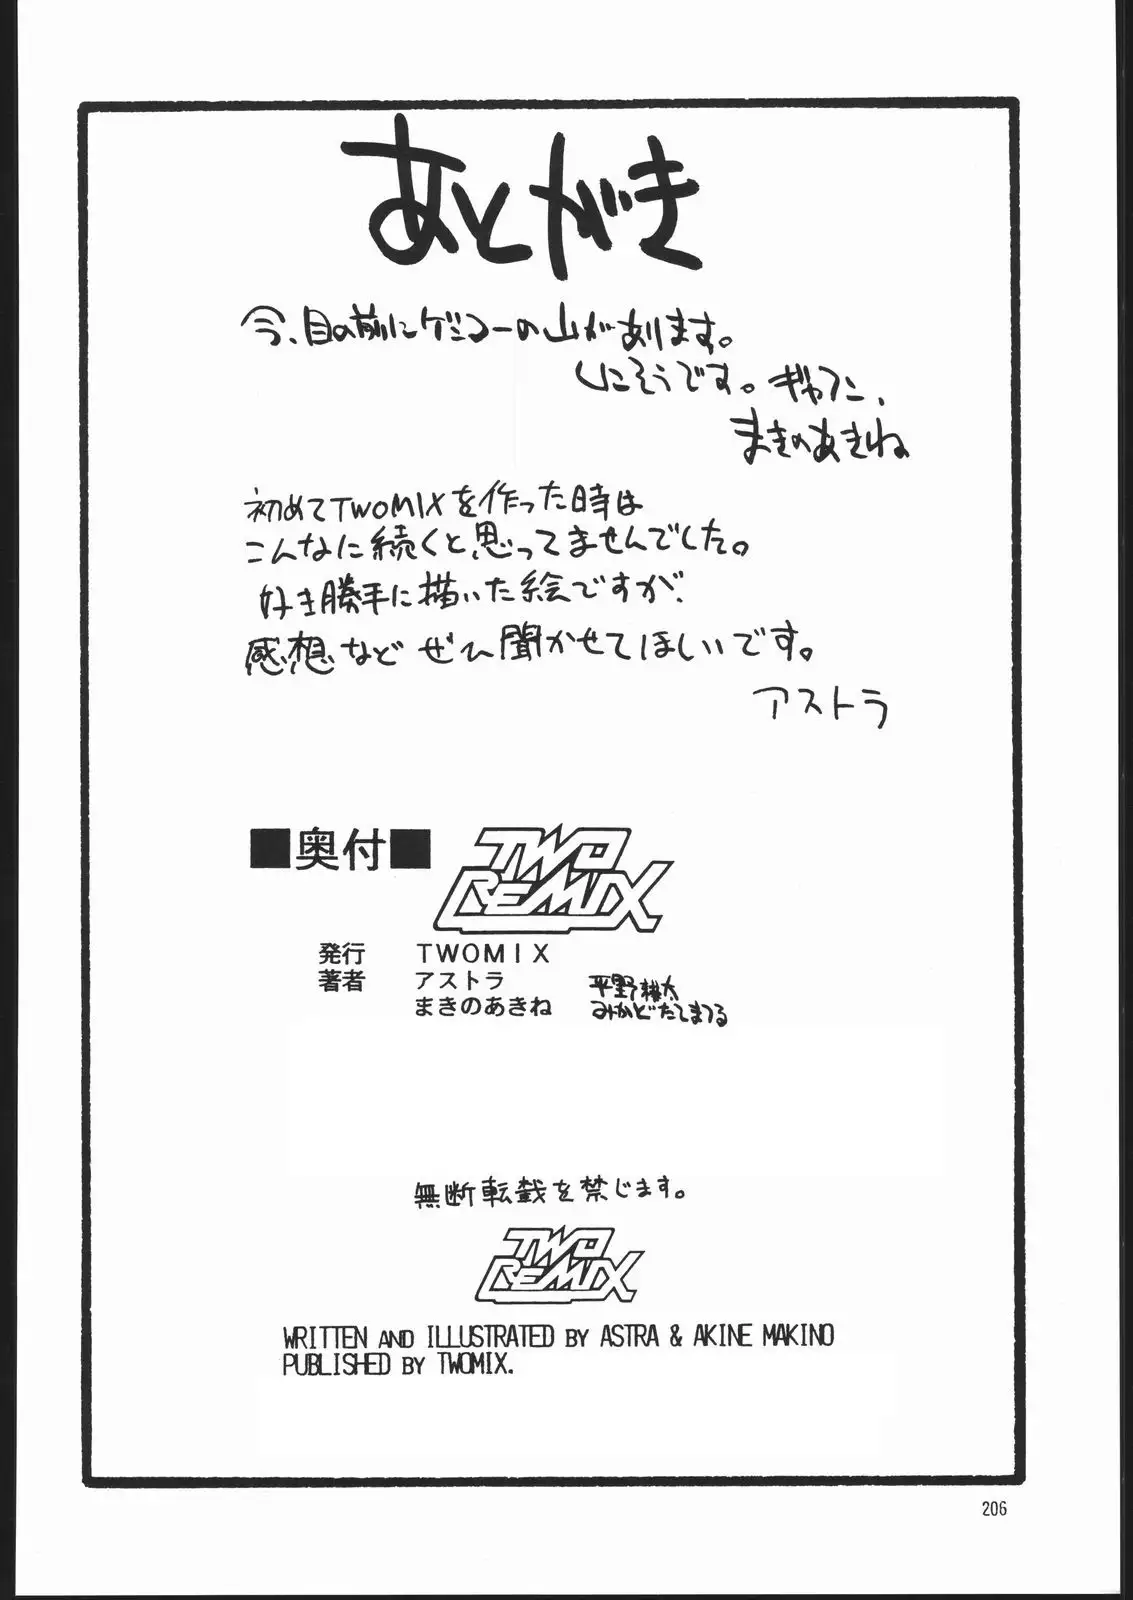 あとがき
今、目の前にゲンコーの山があります。
しにそうです。ギャフン、
まきのあきね
初めてTWOMIXを作った時は
こんなに続くと思ってませんでした。
好き勝手に描いた絵ですが、
感想などぜひ聞かせてほしいです。
アストラ
■奥付■
TWO
REMIX
発行 TWOMIX
著者 アストラ 平野耕太
まきのあきね みかどたてまつる
無断転載を禁じます。
TWO
REMIX
WRITTEN AND ILLUSTRATED BY ASTRA & AKINE MAKINO
PUBLISHED BY TWOMIX.
206